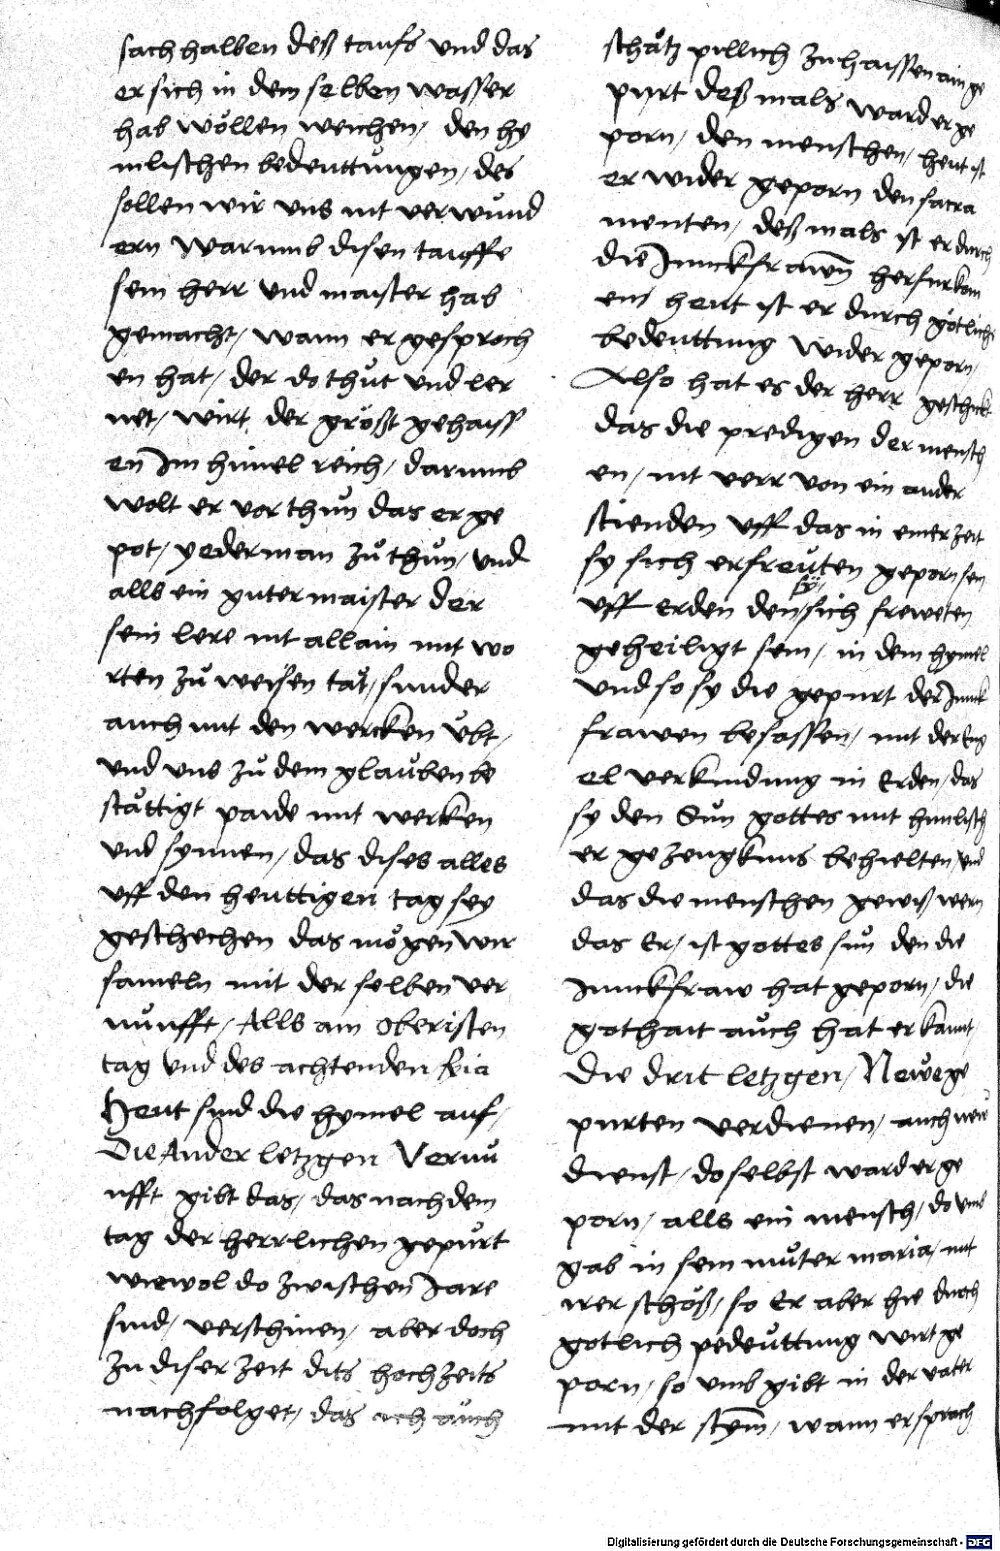 sach halben deß taufs vnd das
er sich in dem selben wasser
hab wöllen weichen / den hy
mlischen bedeuttungen / des
sollen wir vns nit verwund
ern warumb disen tauffe
sein herr vnd maister hab
gemacht / wann er gesproch
en hat / der do thůt vnd ler
net / wirt der größt gehaiss
en Im himel reich / darumb
wolt er vor thůn das er ge
pot / yederman zů thůn / vnd
alls ein guter maister der
sein lere nit allain mit wo
rten zů weisen tät / sunder
auch mit den wercken ůbt /
vnd vns zů dem glaůben be
stättigt paide mit werken
vnd synnen / das dises alles
vff den heuttigen tag sey
geschechen das mögen wir
sameln mit der selben ver
nůnfft / Alls am oberisten
tag vnd des achtenden fria
Heut sind die hymel auf /
Die Ander letzgen Vernů
nfft gibt das / das nach dem
tag der herrlichen gepůrt
wiewol do zwischen Jare
sind / verschinen / aber doch
zu diser zeit dits hochzeits
nachfolget / das ich aůch
schätz pillich zu haissen ain ge
purt deß mals ward er ge
porn / den menschen / heut ist
er wider geporn den sacra
menten / deß mals ist er durch
die Junckfrawen herfur kom
en / heut ist er durch götliche
bedeuttung wider geporn /
Also hat es der herr geschickt
das die predigen der mensch
en / nit verr von ein ander
stienden vff das in einer zeit
sy sich erfreůten geporn sein
vff erden den sy sich freweten
geheiligt sein / in dem hymel
vnd so sy die gepurt der Junck
frawen besassen / mit der Eng
el verkundung in Erden / das
sy den Sůn gottes mit himlisch
er gezeugknus behielten / vnd
das die menschen gewiß wern
das Er / ist gottes sůn den die
Junckfraw hat geporn / die
gothait aůch hat erkannt /
Die drit letzgen / Newe ge
purten verdienen / auch new
dienst / do selbst ward er ge
porn / alls ein mensch / do vmb
gab in sein můter maria / mit
irer schöß / so Er aber hie durch
gotlich pedeůttung wirt ge
porn / so vmb gibt in der vater
mit der stym / wann er sprach
Digitalisierung gefördert durch die Deutsche Forschungsgemeinschaft - DFG